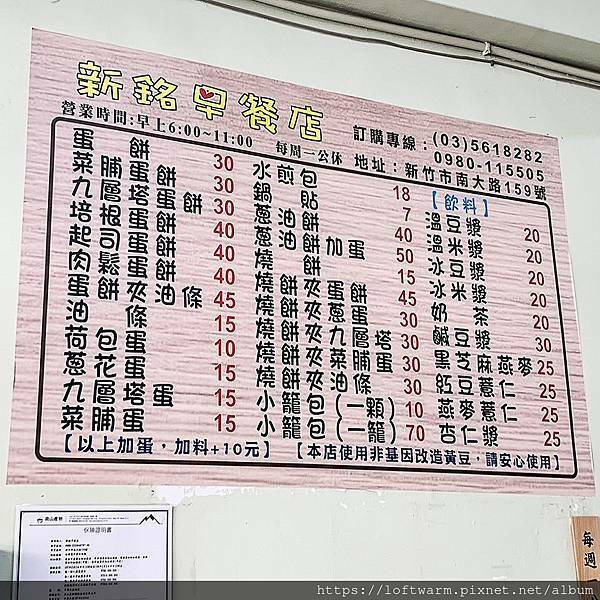 新銘早餐店
營業時間:早上6:00~11:00 每周一公休
訂購專線:(03)5618282
0980-115505
地址:新竹市南大路159號
蛋餅 30
菜脯蛋餅 30
九層塔蛋餅 30
培根蛋餅 40
起司蛋餅 40
肉鬆蛋餅 40
蛋餅夾油條 45
油條 15
荷包蛋 10
蔥花蛋 15
九層塔蛋 15
菜脯蛋 15
水煎包 18
鍋貼 7
蔥油餅 40
蔥油餅加蛋 50
燒餅 15
燒餅夾蛋餅 45
燒餅夾蔥蛋 30
燒餅夾九層塔 30
燒餅夾菜脯蛋 30
燒餅夾油條 30
小籠包(一顆) 10
小籠包(一籠) 70
【飲料】
溫豆漿 20
溫米漿 20
冰豆漿 20
冰米漿 20
奶茶 20
鹹豆漿 30
黑芝麻燕麥 25
紅豆薏仁 25
燕麥薏仁 25
杏仁漿 25
【以上加蛋,加料+10元】
【本店使用非基因改造黃豆,請安心使用】
保險證明書
每週一
https://loftwarm.pixnet.net/album